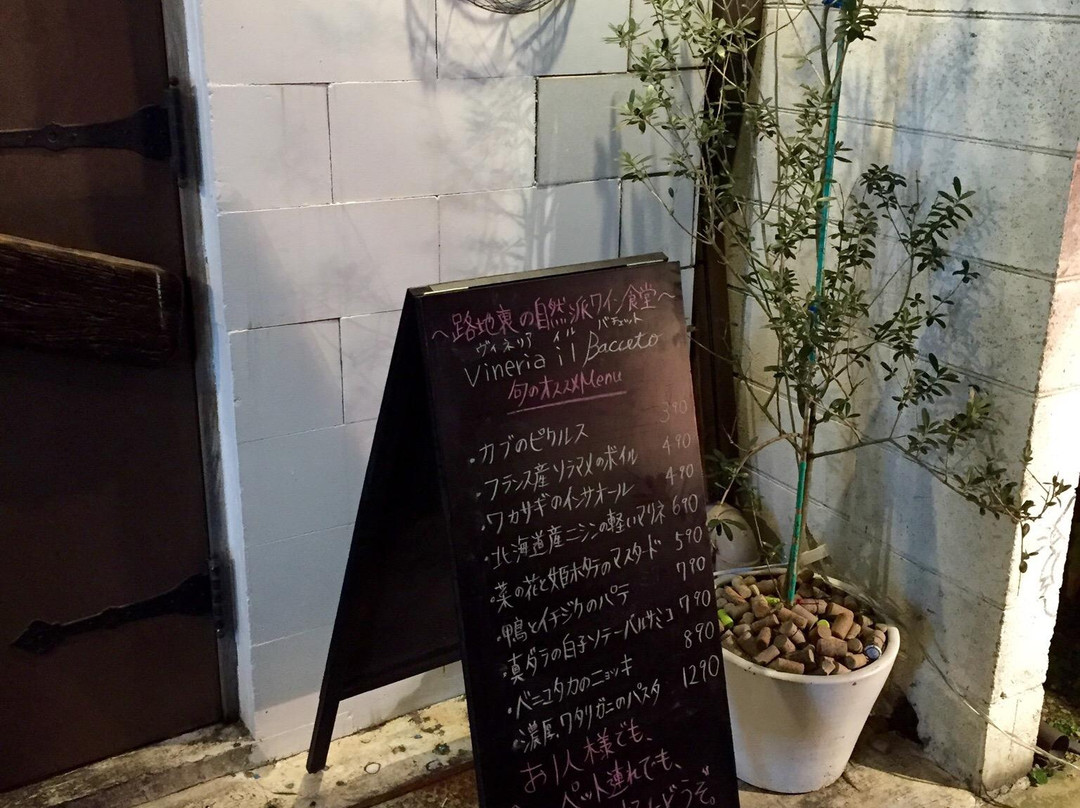 ~路地裏の自然派ワイン食堂~
ヴィネリア イル バチェット
Vineria il Bacceto
旬のオススメMenu
・カブのピクルス 390
・フランス産ソラマメのボイル 490
・ワカサギのインサオール 490
・北海道産ニシンの軽いマリネ 690
・菜の花と姫ホタテのマスタード 590
・鴨とイチジクのパテ 790
・真ダラの白子ソテーバルサミコ 790
・ベニコタカのニョッキ 890
・濃厚、ワタリガニのパスタ 1290
お1人様でも、
ペット連れでも、
どうぞ。